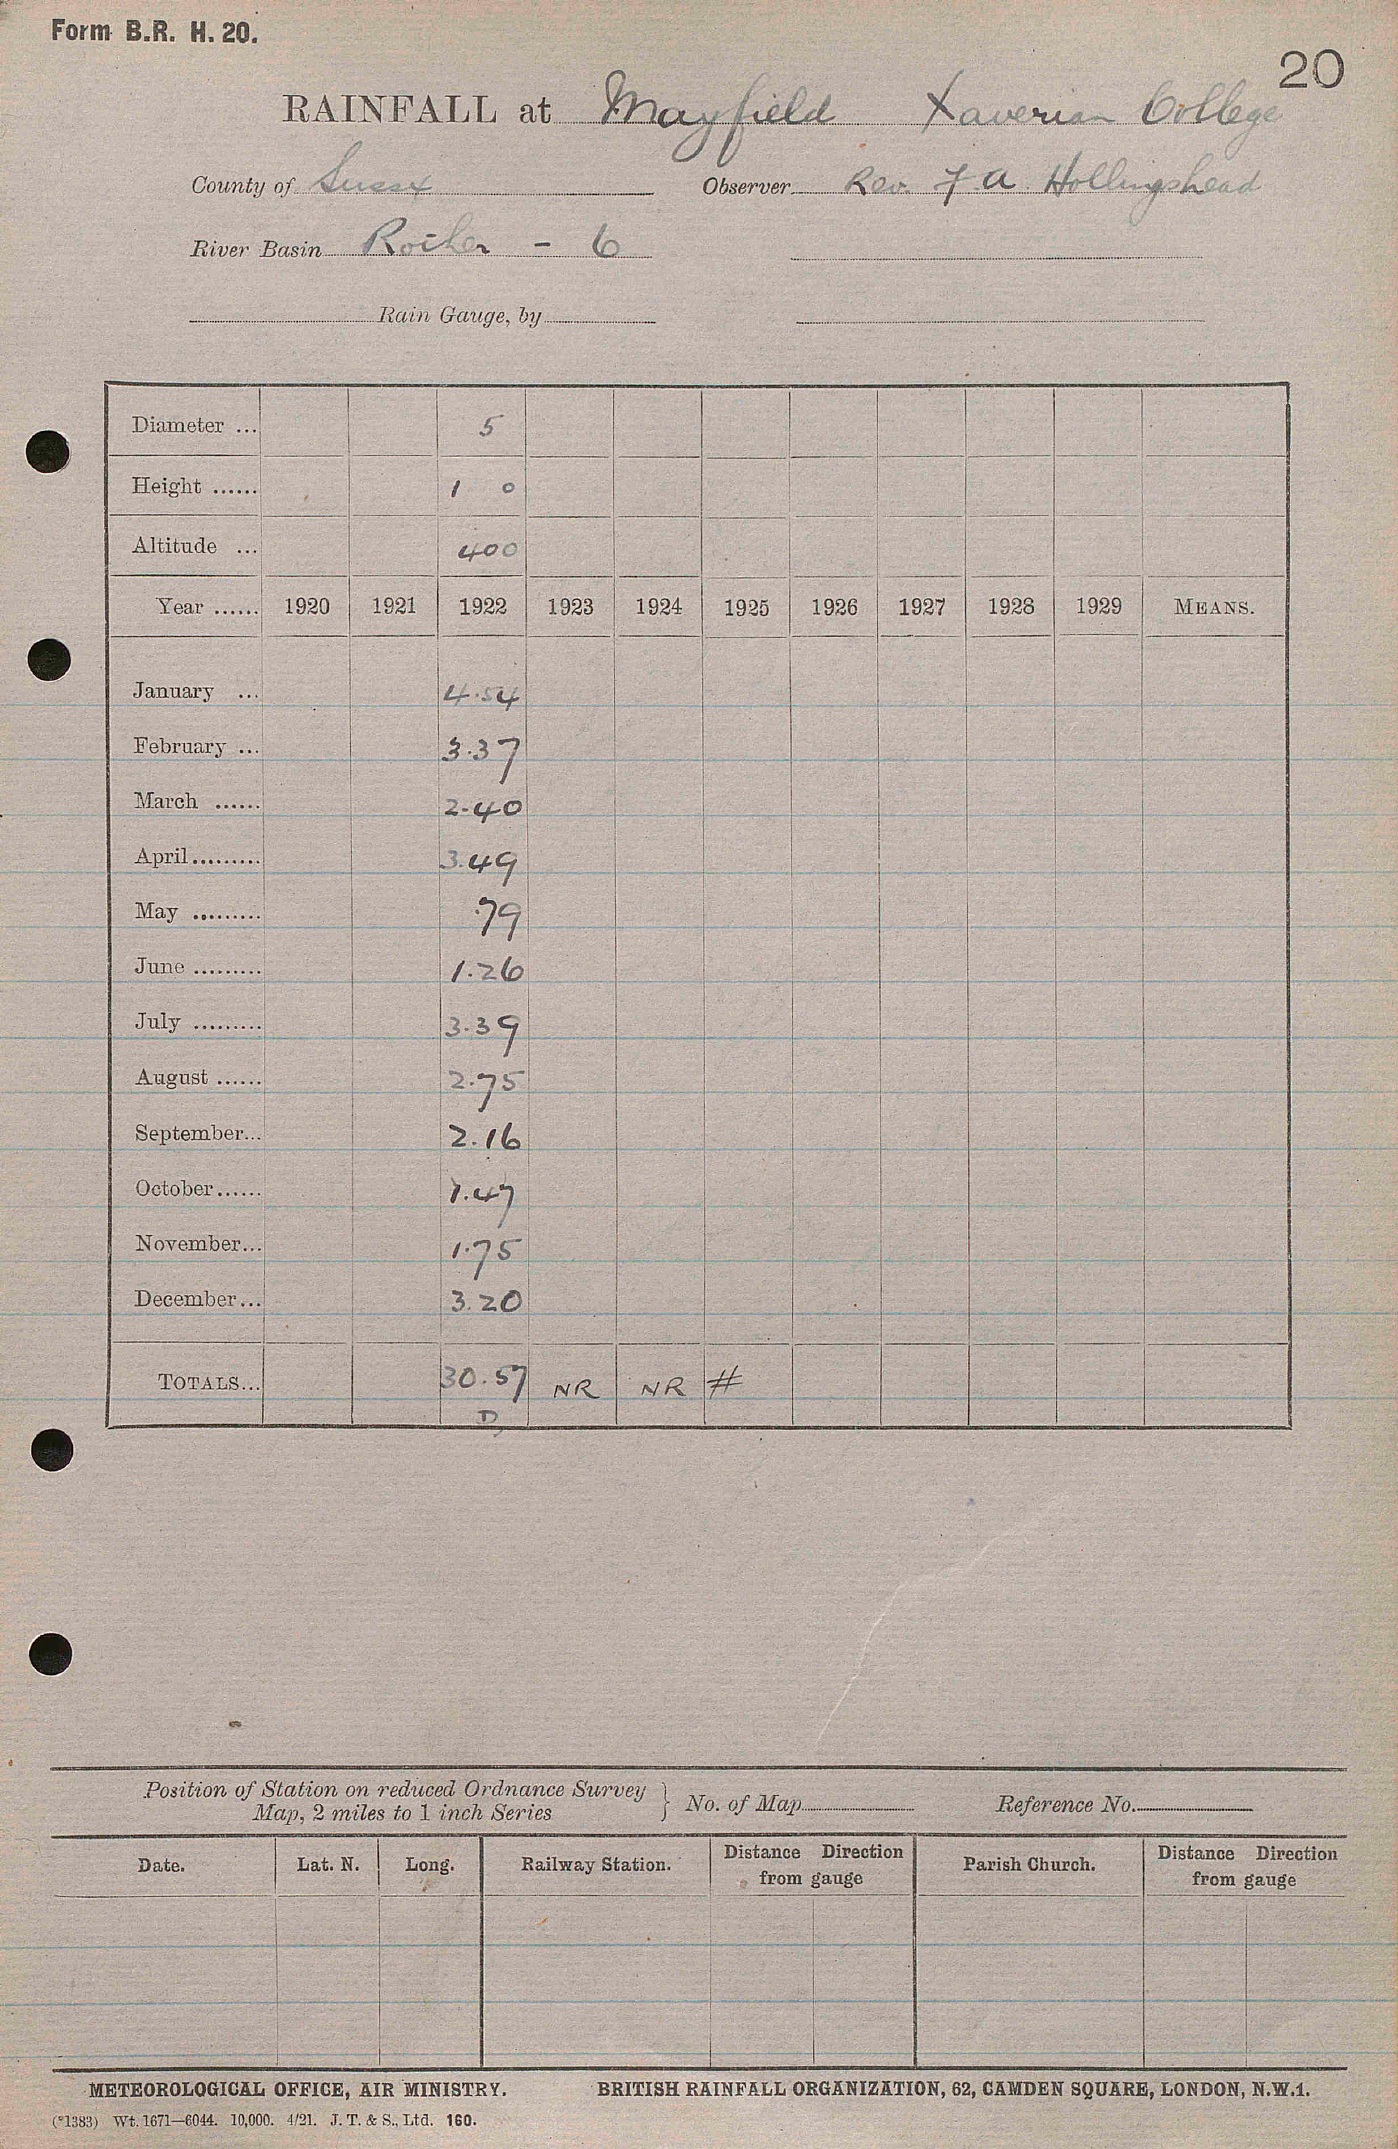 Form B.R. H. 20.
20
RAINFALL at Mayfield Xaverian College
County of Sussex Observer Rev. F. A. Hollingshead
River Basin Rother - 6
Rain Gauge, by
Diameter ... 5
Height ...... 1 0
Altitude ... 400
Year ...... 1920 1921 1922 1923 1924 1925 1926 1927 1928 1929 MEANS.
January ... 4.54
February ... 3.37
March ...... 2.40
April ......... 3.49
May ......... .79
June ......... 1.26
July ......... 3.39
August ...... 2.75
September... 2.16
October...... 1.47
November... 1.75
December... 3.20
TOTALS... 30.57 NR NR #
D
Position of Station on reduced Ordnance Survey
Map, 2 miles to 1 inch Series } No. of Map Reference No.
Date. Lat. N. Long. Railway Station. Distance Direction from gauge Parish Church. Distance Direction from gauge
METEOROLOGICAL OFFICE, AIR MINISTRY. BRITISH RAINFALL ORGANIZATION, 62, CAMDEN SQUARE, LONDON, N.W.1.
(*1383) Wt. 1671—6044. 10,000. 4/21. J. T. & S., Ltd. 160.